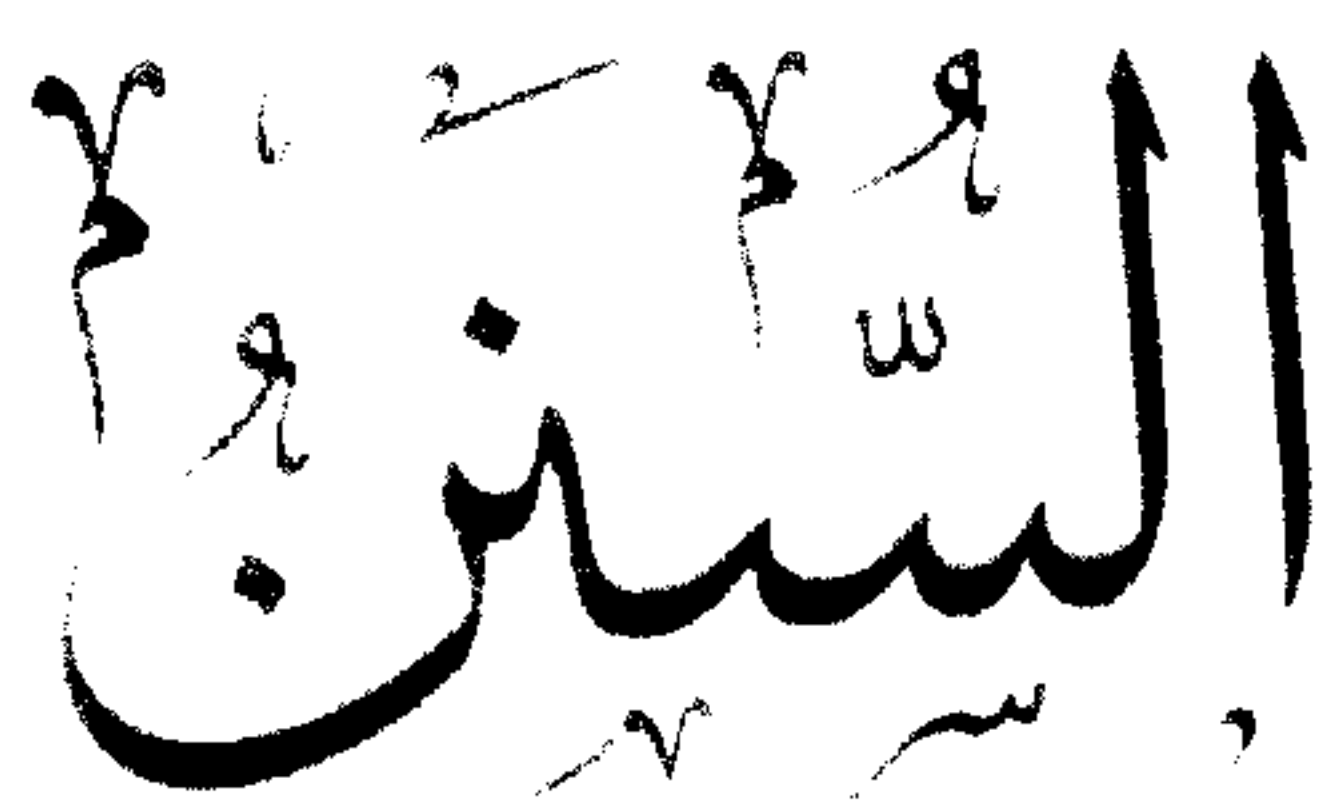 السُّنَنُ